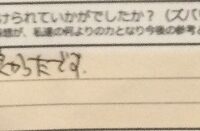 けられていかがでしたか？（ズバ
感想が、私達の何よりの力となり今後の参考と
良かったです。